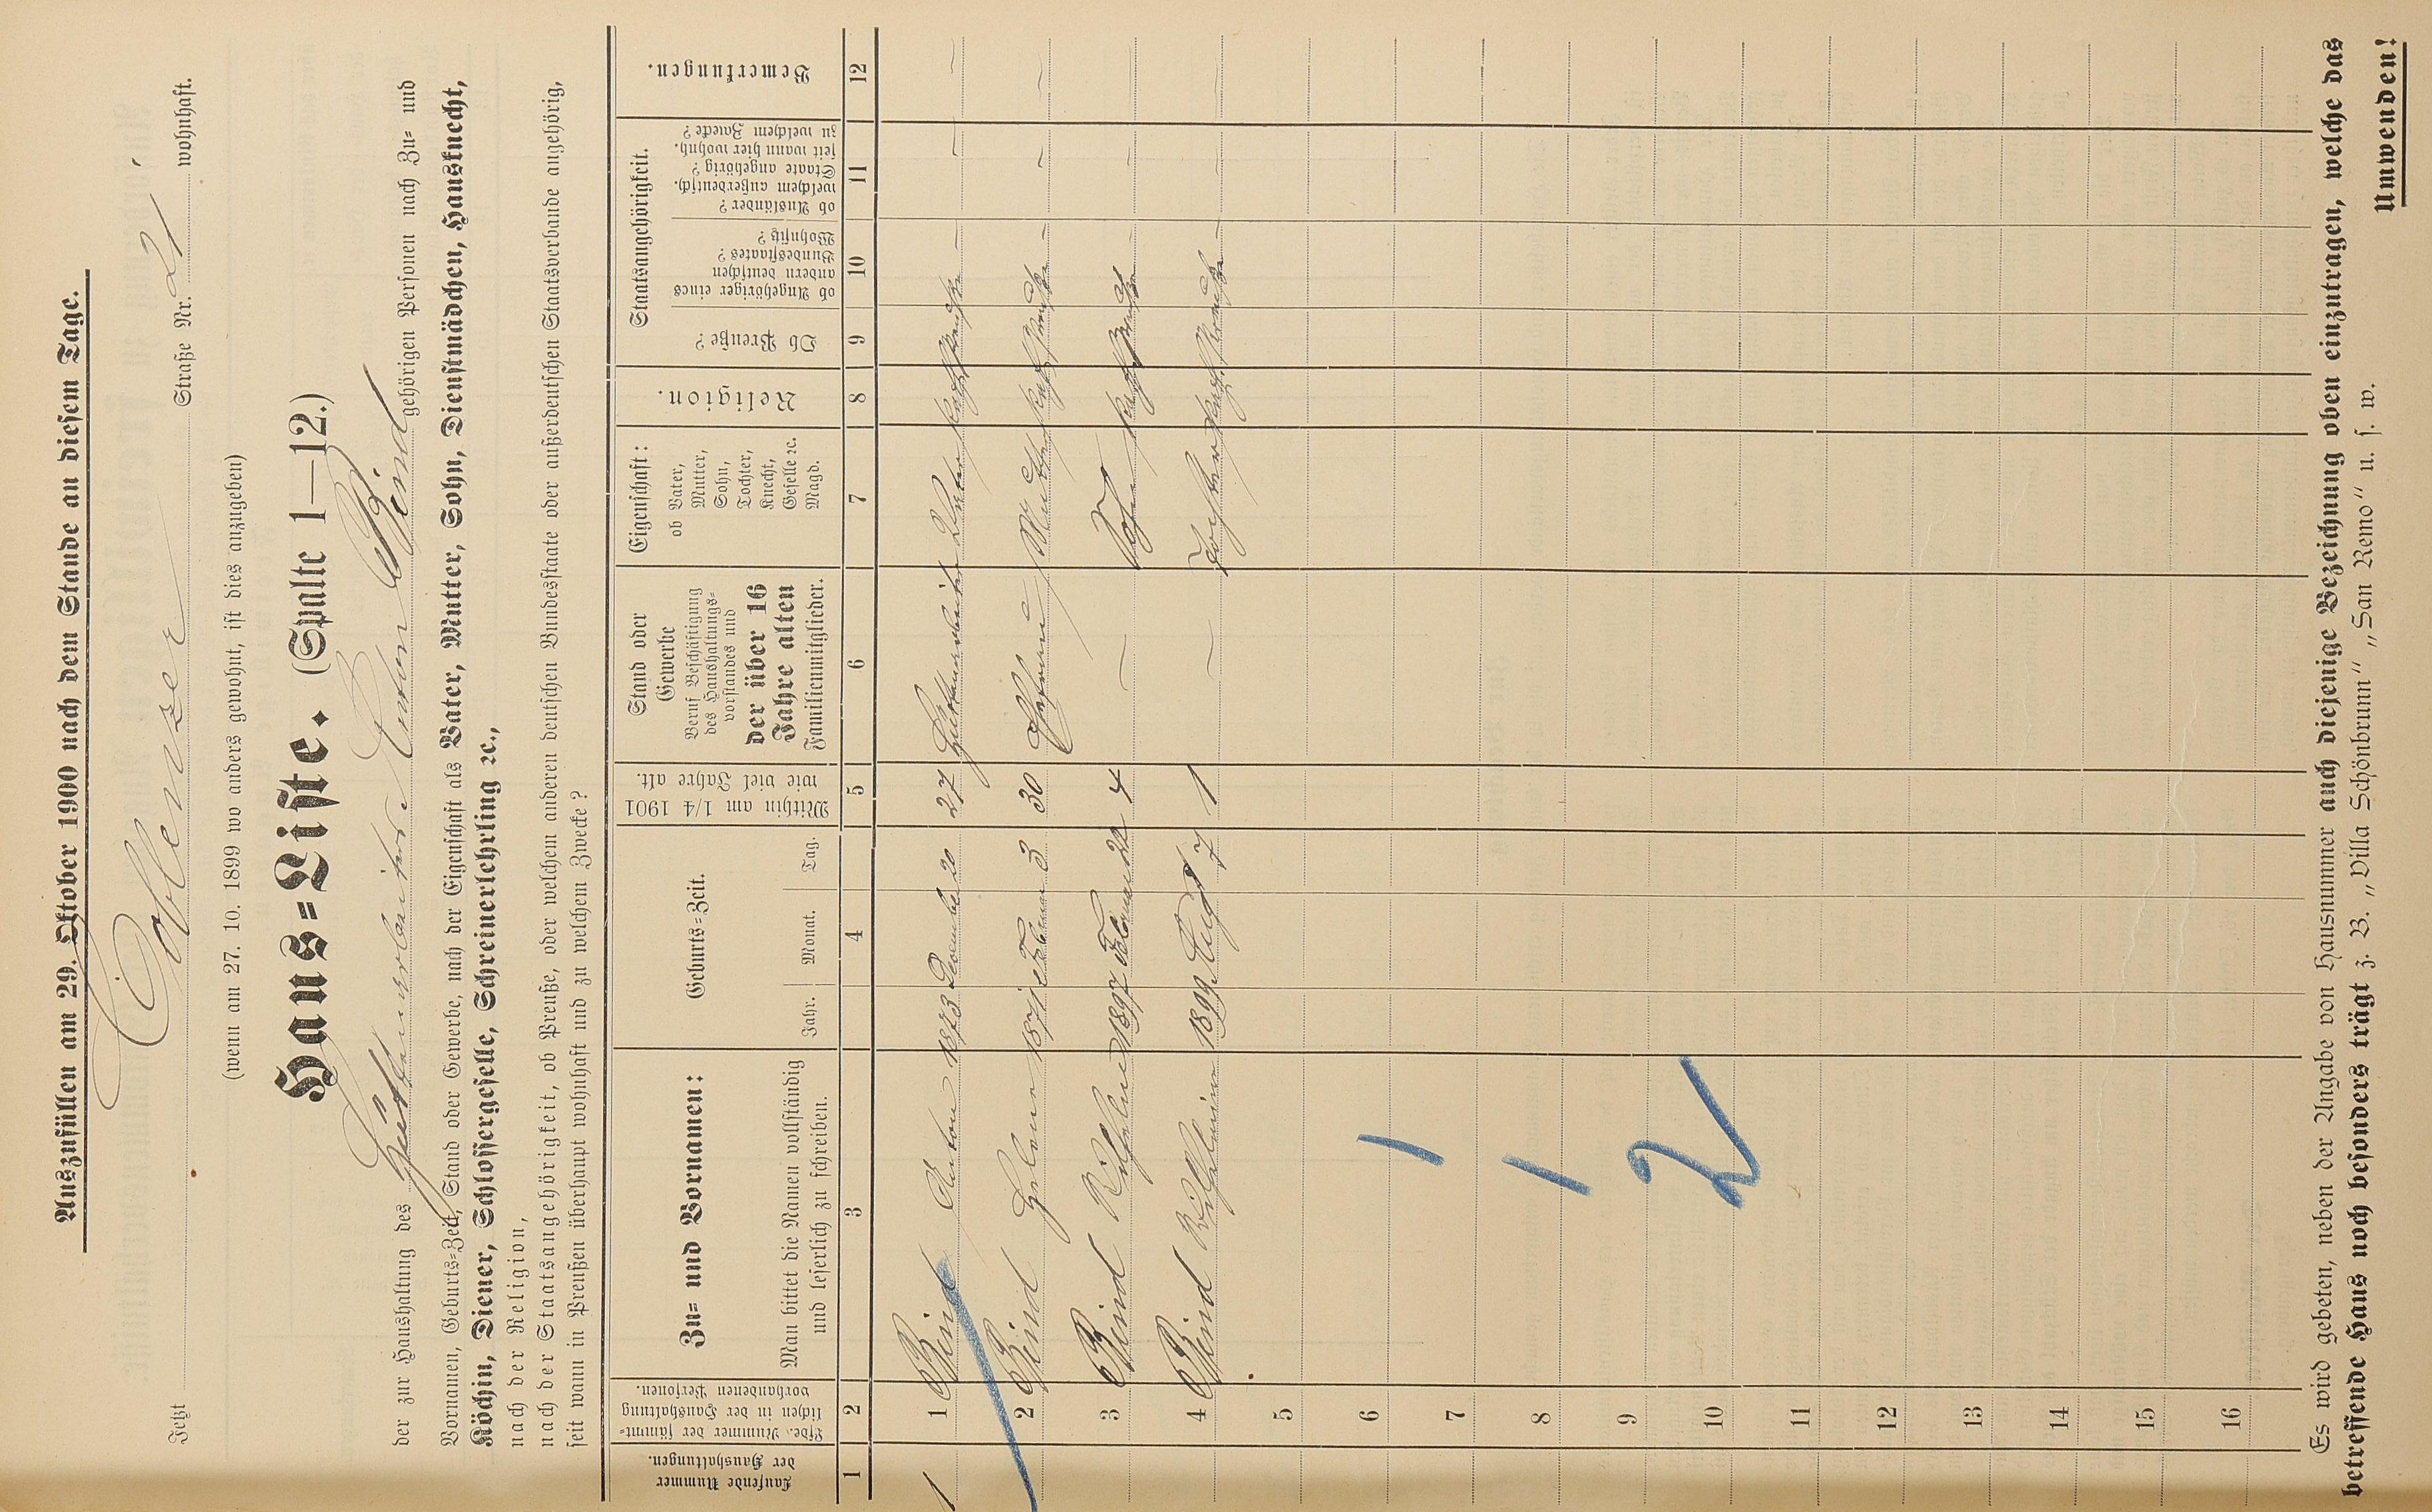 Auszufüllen am 29. Oktober 1900 nach dem Stande an diesem Tage.
Jetzt Coblenzer Straße Nr. 21 wohnhaft.
(wenn am 27. 10. 1899 wo anders gewohnt, ist dies anzugeben)
Haus=Liste. (Spalte 1—12.)
der zur Haushaltung des Hüttenarbeiters Anton Bind gehörigen Personen nach Zu= und
Vornamen, Geburts=Zeit, Stand oder Gewerbe, nach der Eigenschaft als Vater, Mutter, Sohn, Dienstmädchen, Hausknecht,
Köchin, Diener, Schlossergeselle, Schreinerlehrling ꝛc.,
nach der Religion,
nach der Staatsangehörigkeit, ob Preuße, oder welchem anderen deutschen Bundesstaate oder außerdeutschen Staatsverbande angehörig,
seit wann in Preußen überhaupt wohnhaft und zu welchem Zwecke?
Laufende Nummer der Haushaltungen.
Lfde. Nummer der sämmt=lichen in der Haushaltung vorhandenen Personen.
Zu= und Vornamen:
Man bittet die Namen vollständig
und leserlich zu schreiben.
Geburts=Zeit.
Jahr. Monat. Tag.
Mithin am 1/4 1901 wie viel Jahre alt.
Stand oder
Gewerbe
Beruf Beschäftigung
des Haushaltungs=
vorstandes und
der über 16
Jahre alten
Familienmitglieder.
Eigenschaft:
ob Vater,
Mutter,
Sohn,
Tochter,
Knecht,
Geselle ꝛc.
Magd.
Religion.
Staatsangehörigkeit.
Ob Preuße?
ob Angehöriger eines
andern deutschen
Bundesstaates?
Wohnsitz?
ob Ausländer?
welchem außerdeutsch.
Staate angehörig?
seit wann hier wohnh.
zu welchem Zwecke?
Bemerkungen.
1 2 3 4 5 6 7 8 9 10 11 12
1 1 Bind Anton 1873 Dezember 20 27 Hüttenarbeiter Vater kath. Preuße – – –
2 Bind Helene 1871 Februar 3 30 Ehefrau Mutter kath. Preuße – – –
3 Bind Wilhelm 1897 Februar 22 4 – Sohn kath. Preuße – – –
4 Bind Wilhelmine 1899 Aug. 7 1 – Tochter kath. Preuße – – –
5
6
7
8
9
10
11
12
13
14
15
16
1
1
2
Es wird gebeten, neben der Angabe von Hausnummer auch diejenige Bezeichnung oben einzutragen, welche das
betreffende Haus noch besonders trägt z. B. „Villa Schönbrunn“ „San Remo“ u. s. w.
Umwenden!